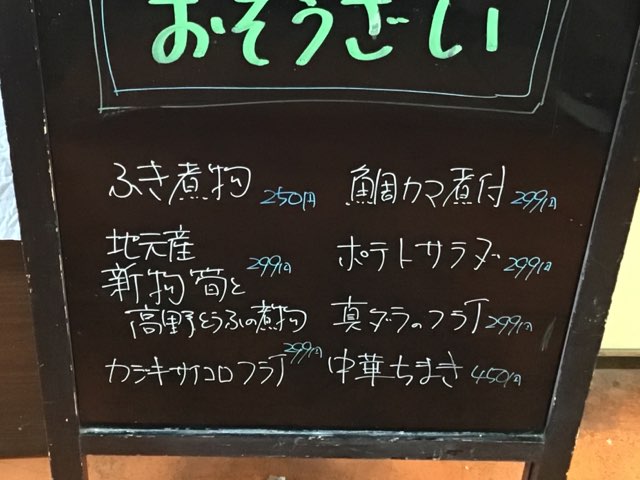 おそうざい
ふき煮物 250円
地元産
新物筍と 299円
高野とうふの煮物
カジキサイコロフライ 299円
鯛カマ煮付 299円
ポテトサラダ 299円
真ダラのフライ 299円
中華ちまき 450円